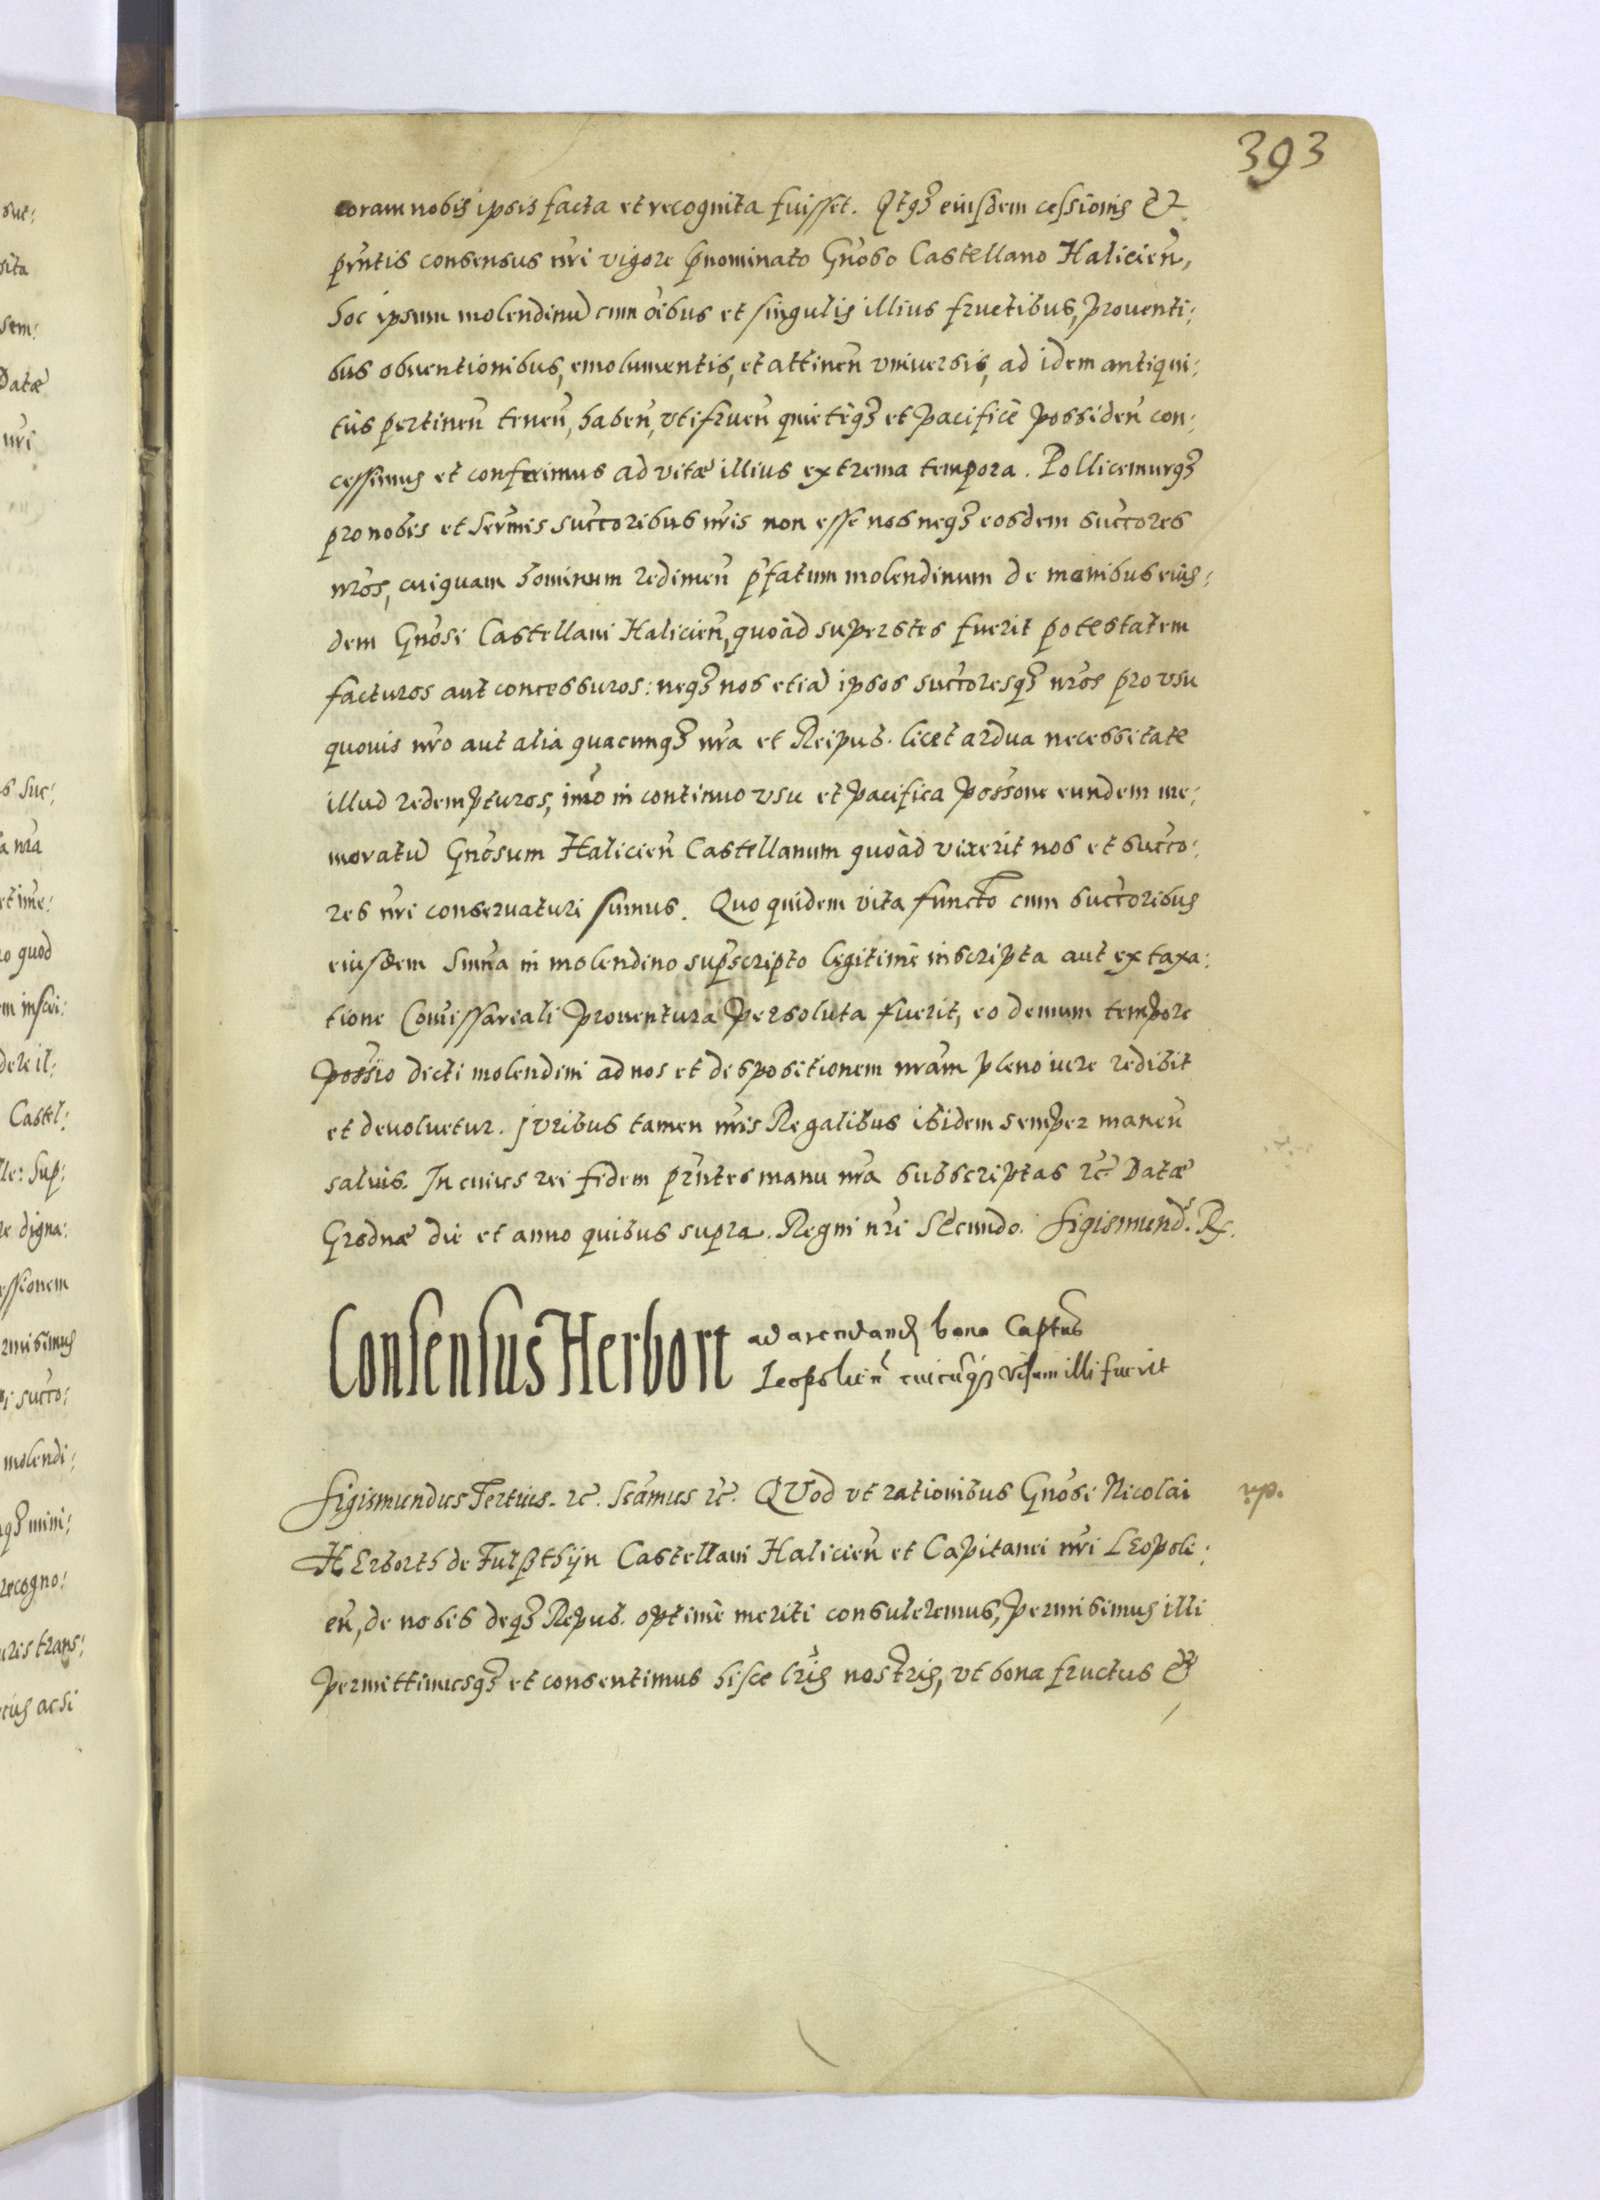 393
coram nobis ipsis facta et recognita fuisset. Qtqꝫ eiusdem cessionis &
prn̄tis consensus nr̄i vigore p̄nominato Gn̄oso Castellano Halicien̄,
hoc ipsum molendinū cum oībus et singulis illius fructibus, proventi;
bus obventionibus, emolumentis, et attinen̄ vniversis, ad idem antiqui;
tùs pertinen̄ tenen̄, haben̄, vtifruen̄ quietèqꝫ et pacificè possiden̄ con;
cessimus et conferimus ad vitæ illius extrema tempora. Pollicemurqꝫ
pro nobis et Serm̄is succ̄oribus nr̄is non esse nos neqꝫ eosdem succ̄ores
nr̄os, cuiquam hominum redimen̄ p̄fatum molendinum de manibus eius;
dem Gn̄osi Castellani Halicien̄, quoàd superstes fuerit potestatem
facturos aut concessuros: neqꝫ nos etiā ipsos succ̄oresqꝫ nr̄os pro vsu
quovis nr̄o aut alia quacunqꝫ nr̄a et Reipub. licet ardua necessitate
illud redempturos, imò in continuo vsu et pacifica poss̄one eundem me;
moratū Gn̄osum Halicien̄ Castellanum quoàd vixerit nos et succ̄o;
res nr̄i conservaturi sumus. Quo quidem vita functo cum succ̄oribus
eiusdem Sum̄a in molendino sup̄scripto legitimè inscripta aut ex taxa;
tione Com̄issariali proventura persoluta fuerit, eo demum tempore
poss̄io dicti molendini ad nos et despositionem nr̄am pleno iure redibit
et devolvetur. Juribus tamen nr̄is Regalibus ibidem semper manen̄
salvis. In cuius rei fidem prn̄tes manu nr̄a subscriptas ꝛc̄ Datæ
Grodnæ die et anno quibus supra. Regni nr̄i Secundo. Sigismund᾿. Rx.
Consensus Herbort ad arendand bona Captus
Leopolien̄ cuicūqꝫ visum illi fuerit
Sigismundus Tertius. ꝛc̄. Sc̄amus ꝛc̄. QVod vt rationibus Gn̄osi Nicolai
HErborth de Fulßthijn Castellani Halicien̄ et Capitanei nr̄i LEopoli;
en̄, de nobis deqꝫ Repub. optimè meriti consuleremus, permisimus illi
permittimusqꝫ et consentimus hisce lr̄is nostris, vt bona fructus &